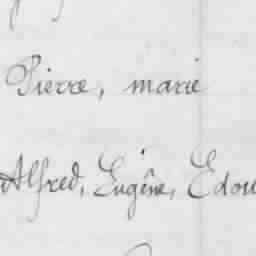 Pierre, marie
Alfred, Eugêne, Edou